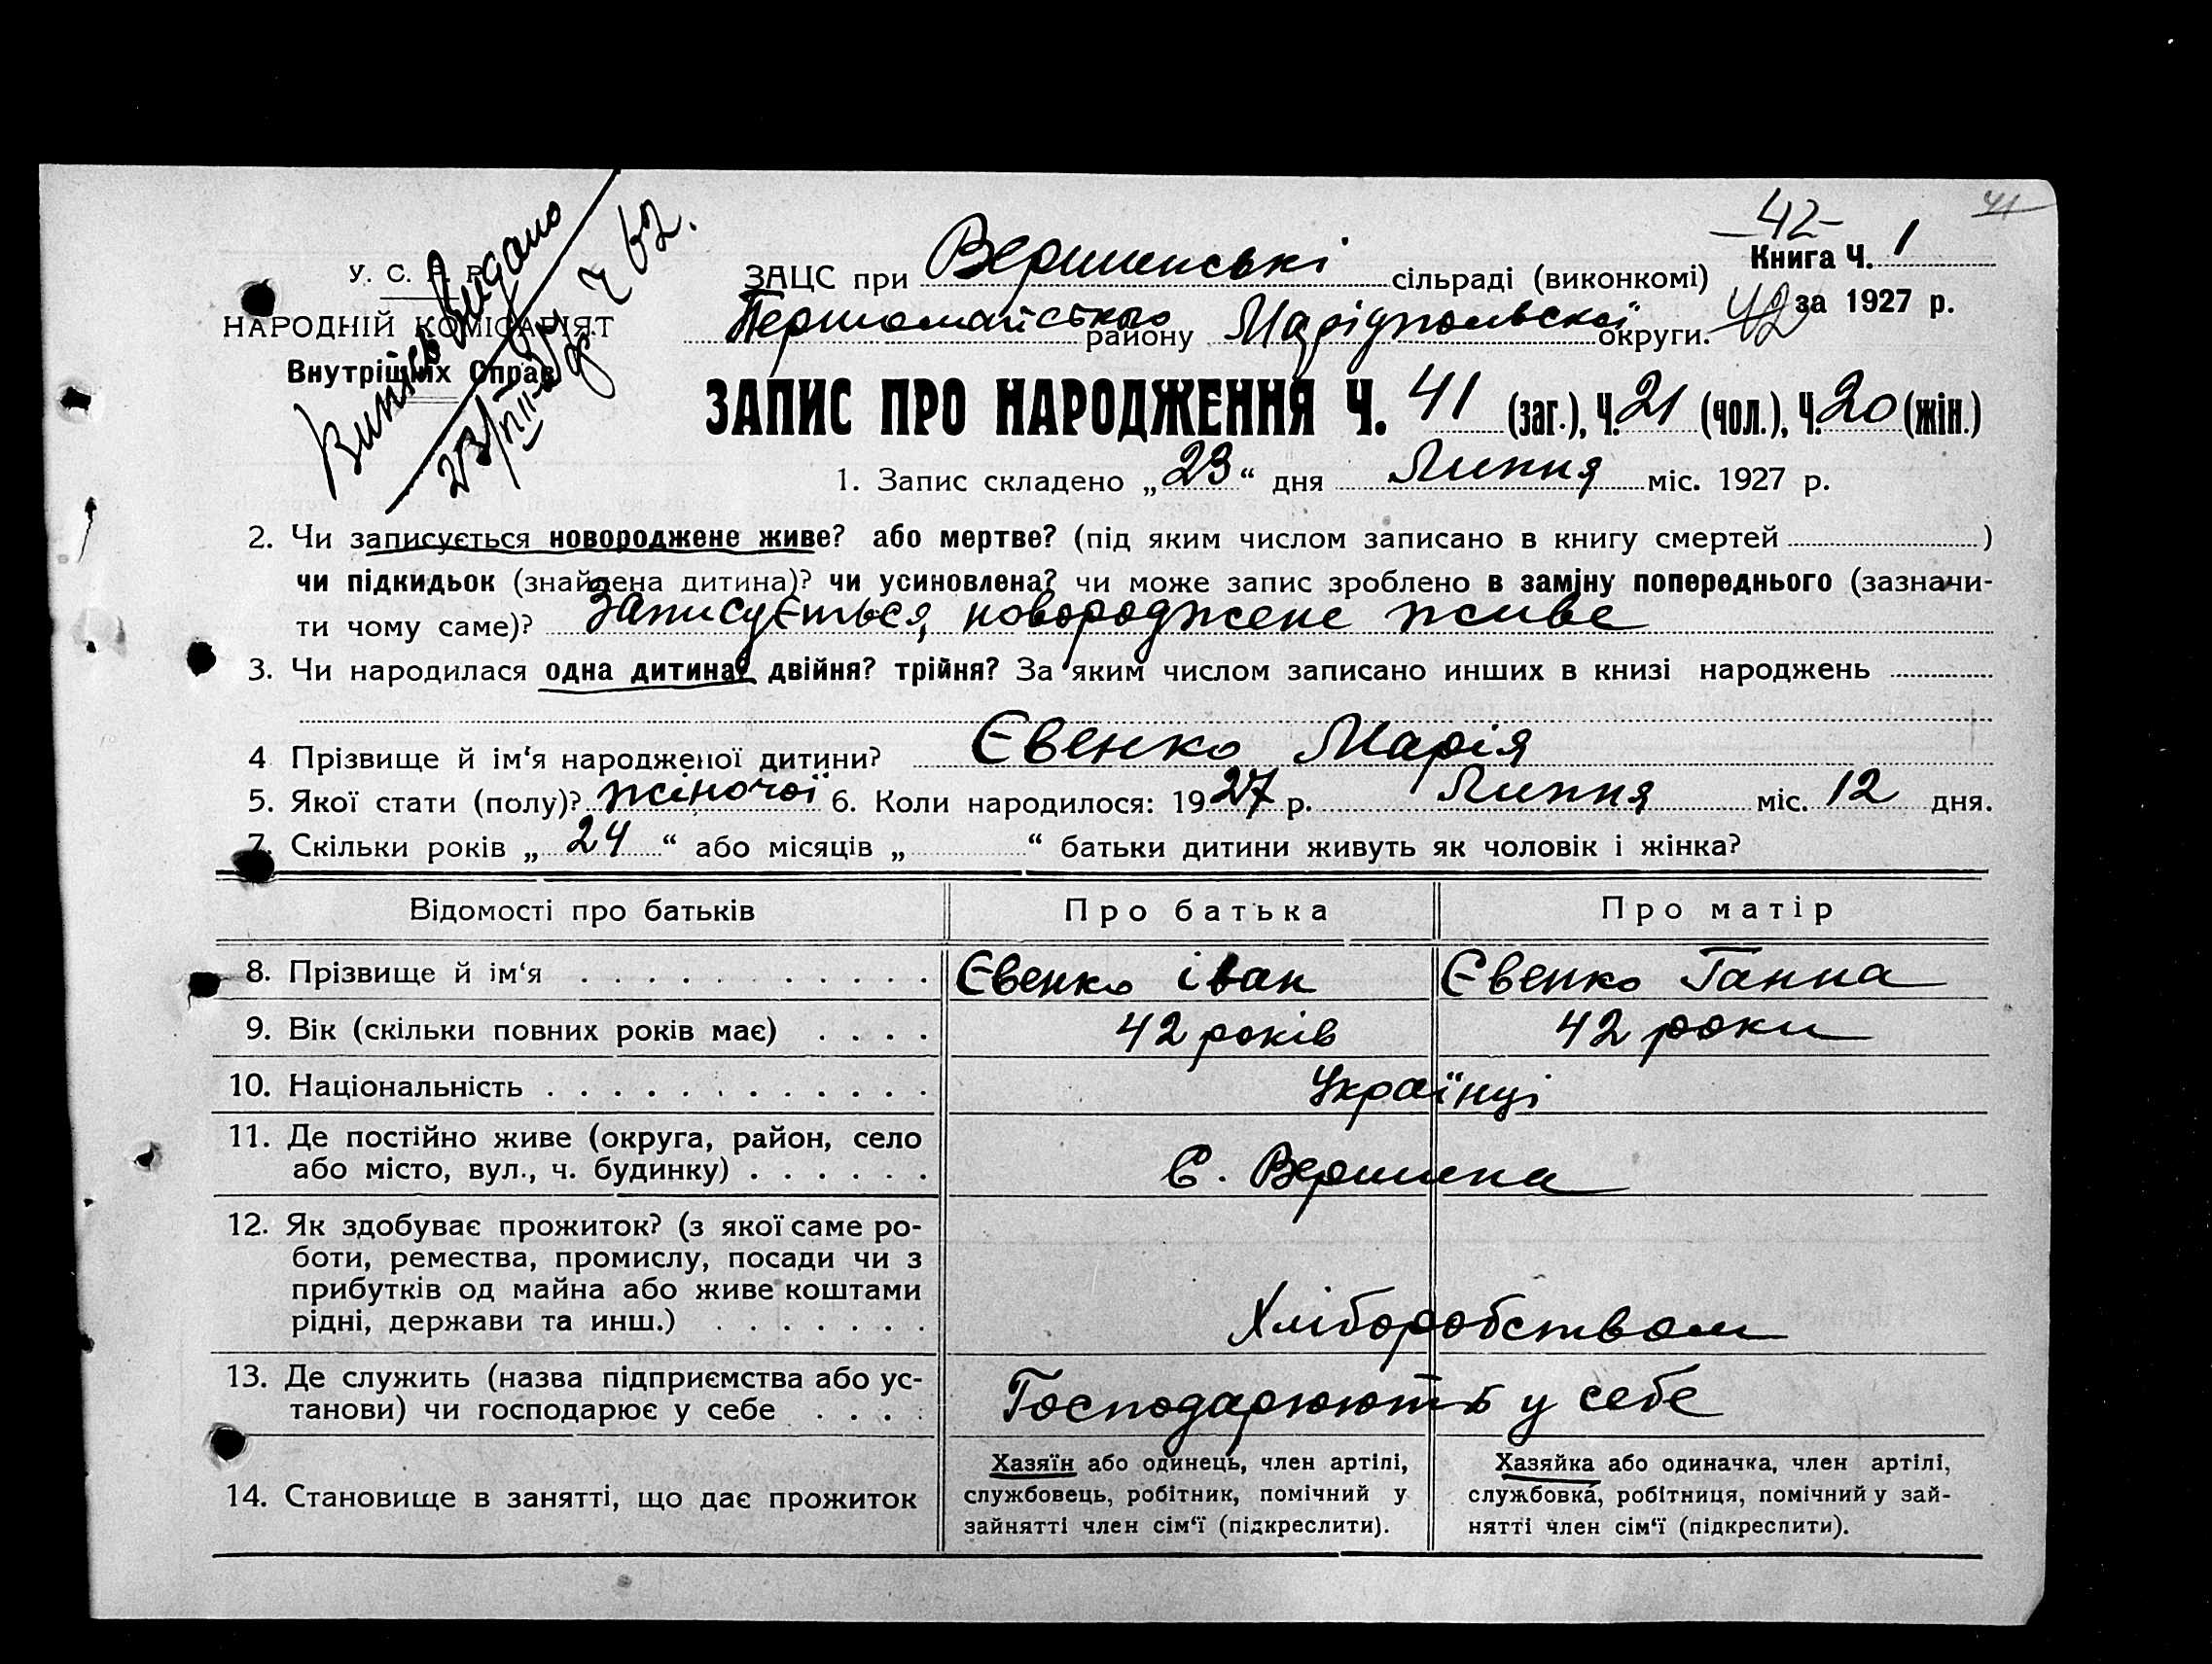 42
41
Книга Ч. 1
У. С. Р. Р.
ЗАЦС при Вершинські сільраді (виконкомі)
42 за 1927 р.
НАРОДНІЙ КОМІСАРІЯТ
Першомайського району Маріупольскої округи.
Внутрішніх Справ
Випись видано
23/VII-27 ч 62.
ЗАПИС ПРО НАРОДЖЕННЯ Ч. 41 (заг.), Ч. 21 (чол.), Ч. 20 (жін.)
1. Запис складено „23“ дня Липня міс. 1927 р.
2. Чи записується новороджене живе? або мертве? (під яким числом записано в книгу смертей )
чи підкидьок (знайдена дитина)? чи усиновлена? чи може запис зроблено в заміну попереднього (зазначи-
ти чому саме)? Записується, новороджене живе
3. Чи народилася одна дитина? двійня? трійня? За яким числом записано инших в книзі народжень
4 Прізвище й ім‘я народженої дитини? Євенко Марія
5. Якої стати (полу)? жіночої 6. Коли народилося: 1927 р. Липня міс. 12 дня.
7. Скільки років „24“ або місяців „ “ батьки дитини живуть як чоловік і жінка?
Відомості про батьків Про батька Про матір
8. Прізвище й ім‘я Євенко іван Євенко Ганна
9. Вік (скільки повних років має) 42 років 42 роки
10. Національність Українці
11. Де постійно живе (округа, район, село
або місто, вул., ч. будинку) С. Вершина
12. Як здобуває прожиток? (з якої саме ро-
боти, ремества, промислу, посади чи з
прибутків од майна або живе коштами
рідні, держави та инш.) Хліборобством
13. Де служить (назва підприємства або ус-
танови) чи господарює у себе Господарюють у себе
14. Становище в занятті, що дає прожиток
Хазяїн або одинець, член артілі,
службовець, робітник, помічний у
зайнятті член сім‘ї (підкреслити).
Хазяйка або одиначка, член артілі,
службовка, робітниця, помічний у зай-
нятті член сім‘ї (підкреслити).